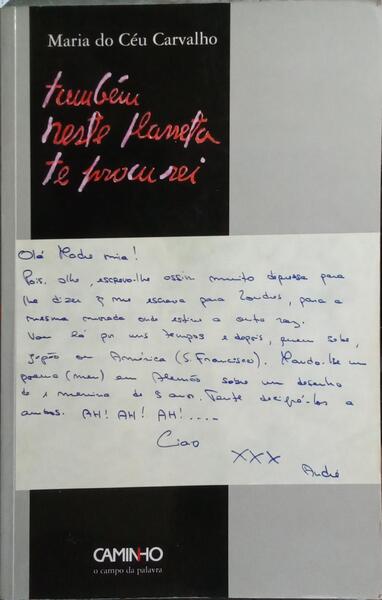 Maria do Céu Carvalho
também
neste planeta
te procurei
Olá Madre mia!
Pois olhe, escrevo-lhe assim muito depressa para
lhe dizer q me escreva para Londres, para a
mesma morada onde estive a outra vez.
Vou lá por uns tempos e depois, quem sabe,
Japão ou América (S. Francisco). Mando-lhe um
poema (meu) em Alemão sobre um desenho
de 1 menina de 3 anos. Tente decifrá-los a
ambos. AH! AH! AH!....
Ciao
XXX
André
CAMINHO
o campo da palavra